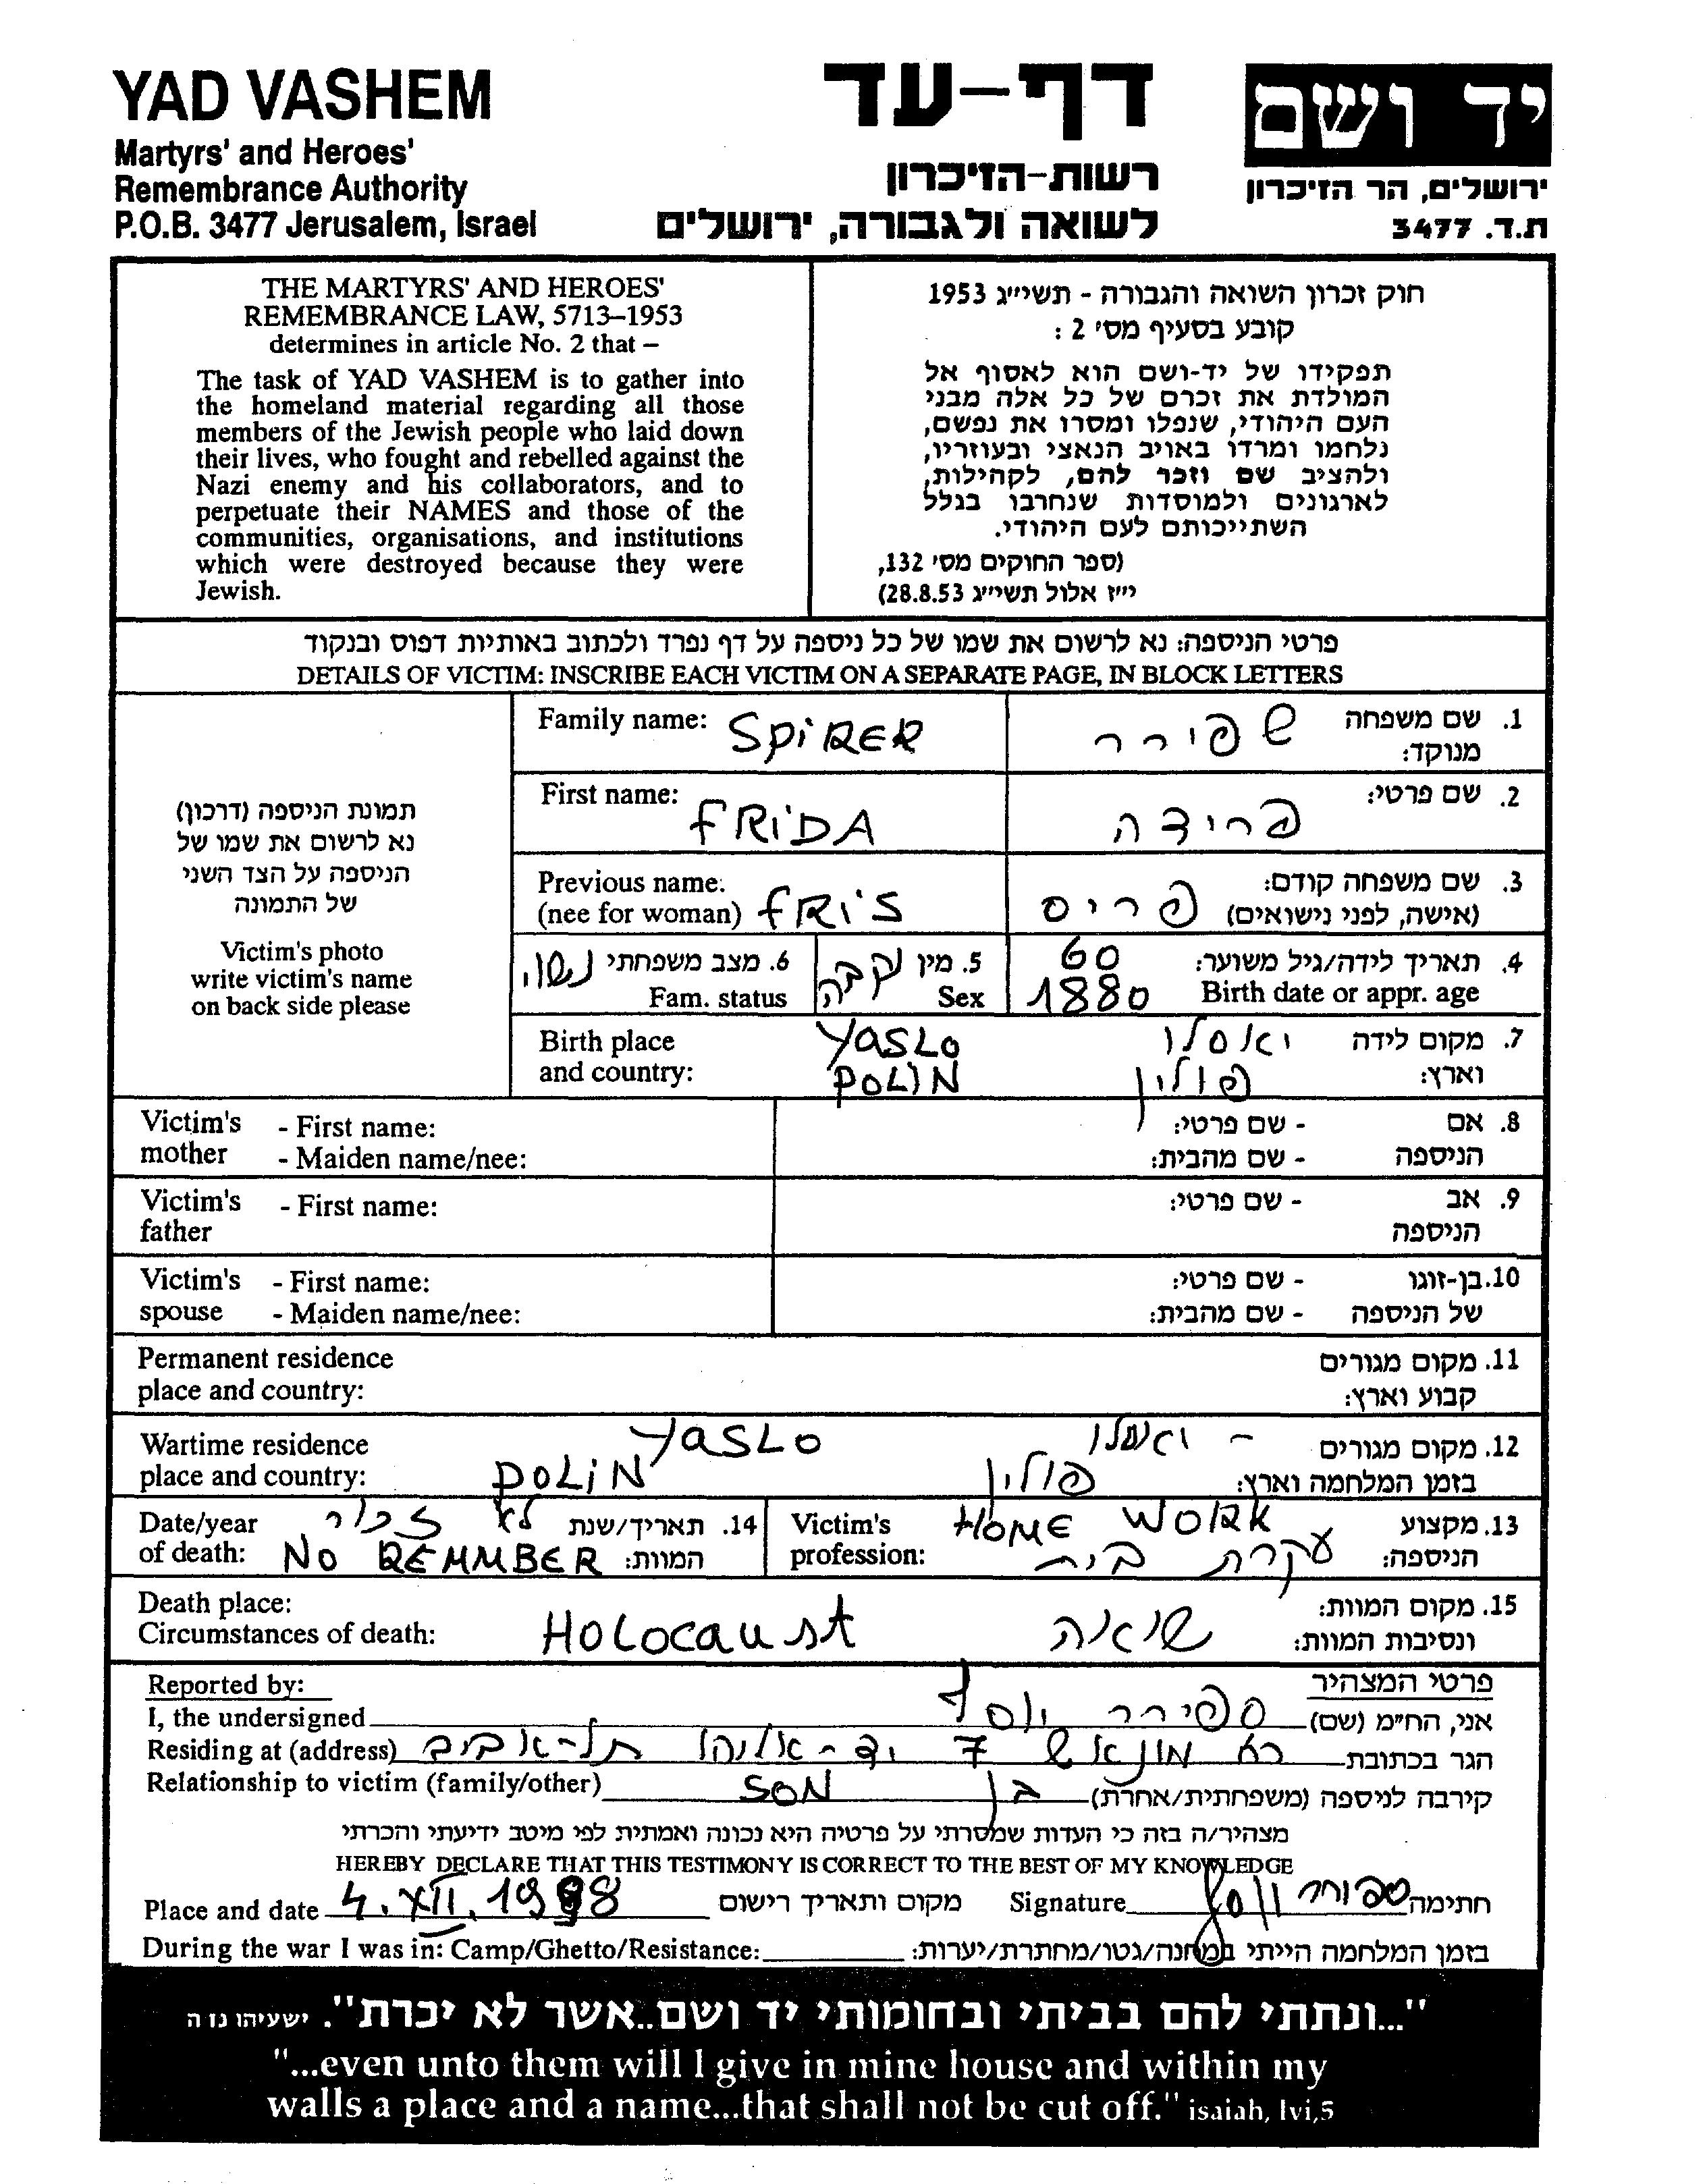 YAD VASHEM
Martyrs' and Heroes'
Remembrance Authority
P.O.B. 3477 Jerusalem, Israel
דף-עד
רשות-הזיכרון
לשואה ולגבורה, ירושלים
יד ושם
ירושלים, הר הזיכרון
ת.ד. 3477
THE MARTYRS' AND HEROES'
REMEMBRANCE LAW, 5713–1953
determines in article No. 2 that –
The task of YAD VASHEM is to gather into
the homeland material regarding all those
members of the Jewish people who laid down
their lives, who fought and rebelled against the
Nazi enemy and his collaborators, and to
perpetuate their NAMES and those of the
communities, organisations, and institutions
which were destroyed because they were
Jewish.
חוק זכרון השואה והגבורה - תשי״ג 1953
קובע בסעיף מס׳ 2 :
תפקידו של יד-ושם הוא לאסוף אל
המולדת את זכרם של כל אלה מבני
העם היהודי, שנפלו ומסרו את נפשם,
נלחמו ומרדו באויב הנאצי ובעוזריו,
ולהציב שם וזכר להם, לקהילות,
לארגונים ולמוסדות שנחרבו בגלל
השתייכותם לעם היהודי.
(ספר החוקים מס׳ 132,
י״ז אלול תשי״ג 28.8.53)
פרטי הניספה: נא לרשום את שמו של כל ניספה על דף נפרד ולכתוב באותיות דפוס ובנקוד
DETAILS OF VICTIM: INSCRIBE EACH VICTIM ON A SEPARATE PAGE, IN BLOCK LETTERS
תמונת הניספה (דרכון)
נא לרשום את שמו של
הניספה על הצד השני
של התמונה
Victim's photo
write victim's name
on back side please
Family name: SPiRER שפירר 1. שם משפחה
מנוקד:
First name: FRiDA פרידה 2. שם פרטי:
Previous name: 3. שם משפחה קודם:
(nee for woman) FRiS פריס (אישה, לפני נישואים)
6. מצב משפחתי נשוי 5. מין נקבה 60 4. תאריך לידה/גיל משוער:
Fam. status Sex 1880 Birth date or appr. age
Birth place YASLO יאסלו 7. מקום לידה
and country: POLIN פולין וארץ:
Victim's - First name: - שם פרטי: 8. אם
mother - Maiden name/nee: - שם מהבית: הניספה
Victim's - First name: - שם פרטי: 9. אב
father הניספה
Victim's - First name: - שם פרטי: 10. בן-זוגו
spouse - Maiden name/nee: - שם מהבית: של הניספה
Permanent residence 11. מקום מגורים
place and country: קבוע וארץ:
Wartime residence YASLO יאסלו 12. מקום מגורים
place and country: POLiN פולין בזמן המלחמה וארץ:
Date/year לא זכור 14. תאריך/שנת
of death: NO REMMBER המוות:
Victim's HOME WORK 13. מקצוע
profession: עקרת בית הניספה:
Death place: 15. מקום המוות:
Circumstances of death: HOLOCAUST שואה ונסיבות המוות:
Reported by: פרטי המצהיר
I, the undersigned ספירר יוסף אני, החי״מ (שם)
Residing at (address) 7 יד-אליהו תל-אביב הגר בכתובת
Relationship to victim (family/other) SON בן קירבה לניספה (משפחתית/אחרת)
מצהיר/ה בזה כי העדות שמסרתי על פרטיה היא נכונה ואמתית לפי מיטב ידיעתי והכרתי
HEREBY DECLARE THAT THIS TESTIMONY IS CORRECT TO THE BEST OF MY KNOWLEDGE
Place and date 4.XII.1998 מקום ותאריך רישום Signature ספירר יוסף חתימה
During the war I was in: Camp/Ghetto/Resistance: בזמן המלחמה הייתי במחנה/גטו/מחתרת/יערות:
"...ונתתי להם בביתי ובחומותי יד ושם..אשר לא יכרת". ישעיהו נז ה
"...even unto them will I give in mine house and within my
walls a place and a name...that shall not be cut off." isaiah, lvi,5